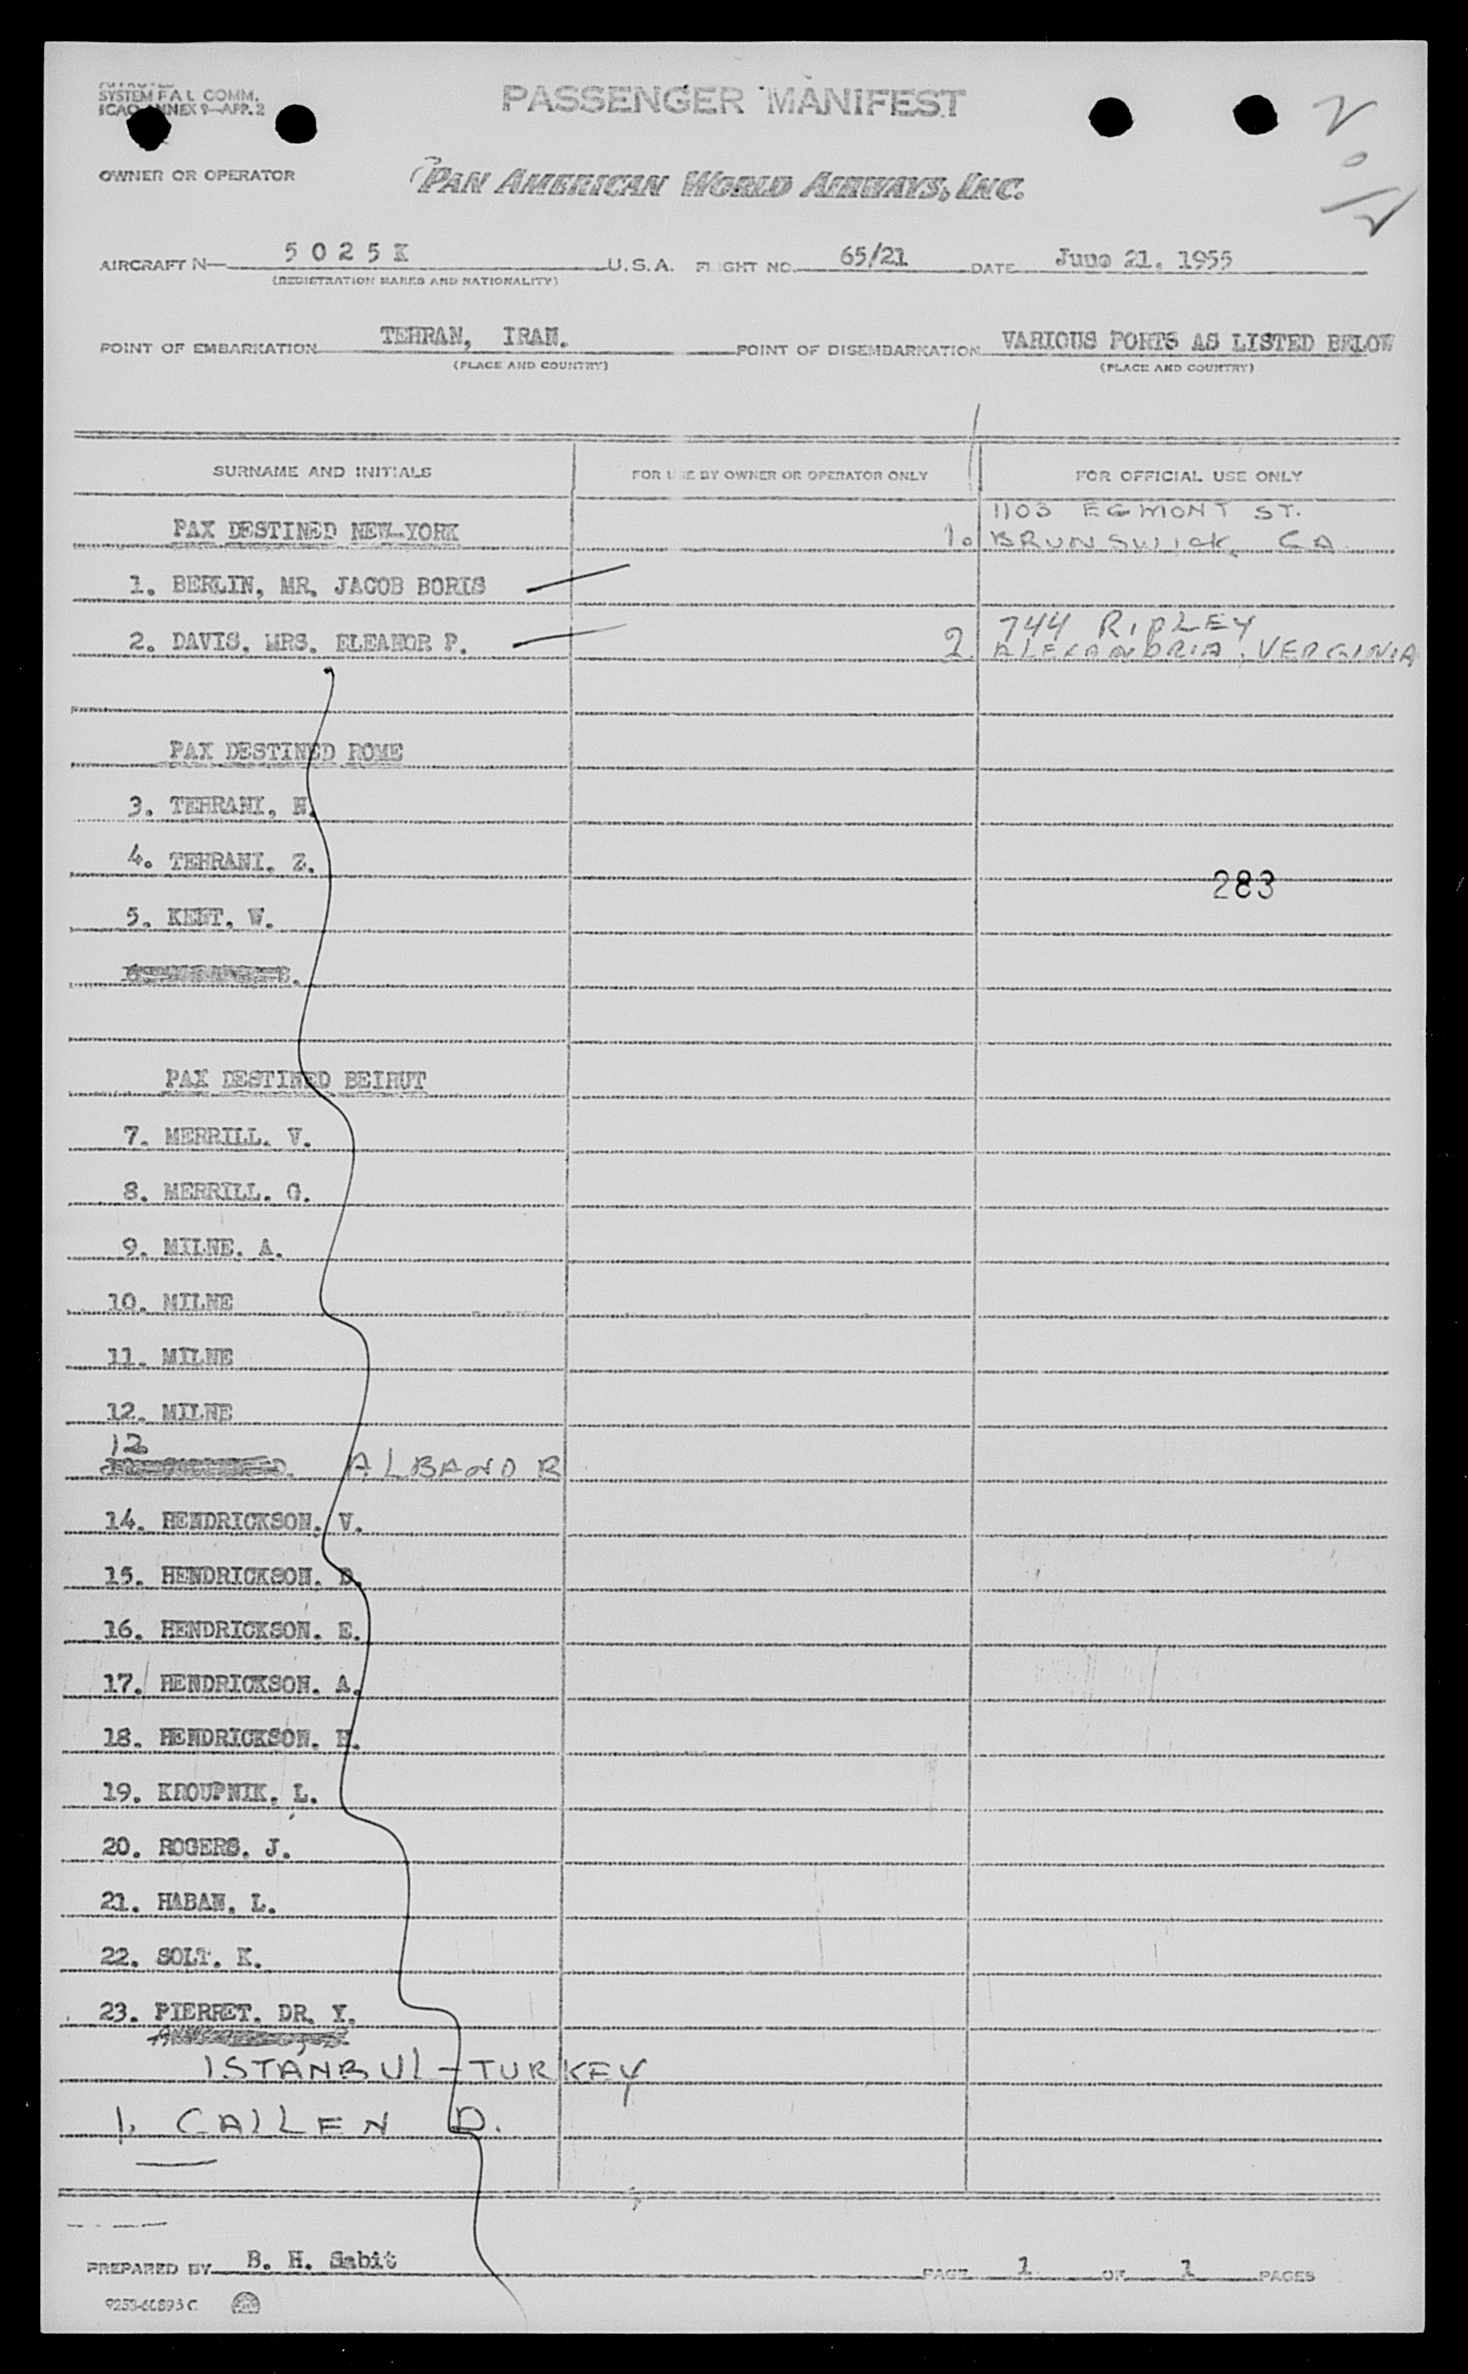 SYSTEM F A L COMM.
ICAO ANNEX 9—APP. 2
PASSENGER MANIFEST
OWNER OR OPERATOR
PAN AMERICAN WORLD AIRWAYS, INC.
AIRCRAFT N— 5025K U.S.A. FLIGHT NO. 65/21 DATE June 21, 1955
(REGISTRATION MARKS AND NATIONALITY)
POINT OF EMBARKATION TEHRAN, IRAN. POINT OF DISEMBARKATION VARIOUS PORTS AS LISTED BELOW
(PLACE AND COUNTRY) (PLACE AND COUNTRY)
SURNAME AND INITIALS FOR USE BY OWNER OR OPERATOR ONLY FOR OFFICIAL USE ONLY
1103 EGMONT ST.
PAX DESTINED NEW-YORK 1. BRUNSWICK, GA.
1. BERLIN, MR. JACOB BORIS
744 RIPLEY
2. DAVIS. MRS. ELEANOR P. 2 ALEXANDRIA, VERGINIA
PAX DESTINED ROME
3. TEHRANI, H.
4. TEHRANI. Z.
283
5. KENT, W.
PAX DESTINED BEIRUT
7. MERRILL. V.
8. MERRILL. G.
9. MILNE. A.
10. MILNE
11. MILNE
12. MILNE
12 ALBAND R
14. HENDRICKSON. V.
15. HENDRICKSON. D.
16. HENDRICKSON. E.
17. HENDRICKSON. A.
18. HENDRICKSON. H.
19. KROUPNIK. L.
20. ROGERS. J.
21. HABAN. L.
22. SOLT. K.
23. PIERRET. DR. Y.
ISTANBUL - TURKEY
1. CALLEN D.
PREPARED BY B. H. Sabit PAGE 1 OF 1 PAGES